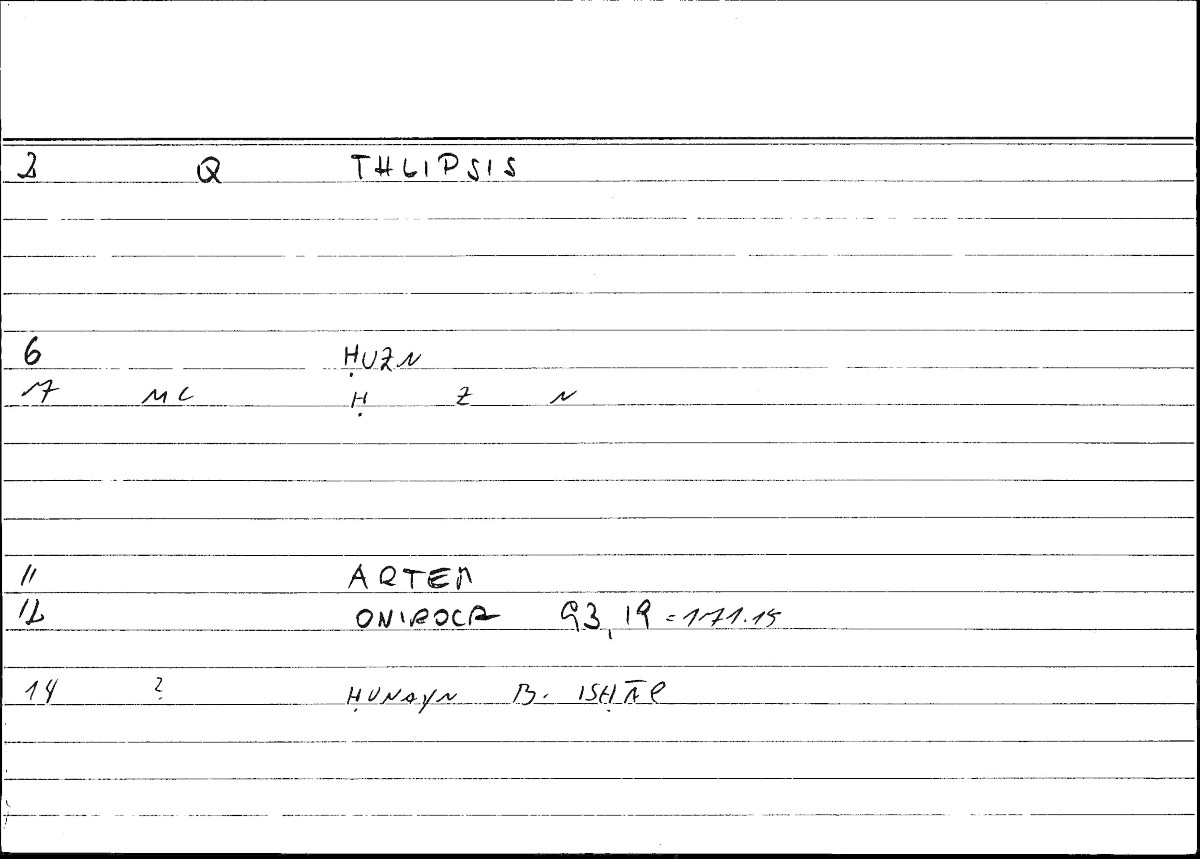 2 Q THLIPSIS
6 ḤUZN
7 MC Ḥ Z N
11 ARTEM
12 ONIROCR 93,19 = 171.15
14 ? ḤUNAYN B. ISḤĀQ